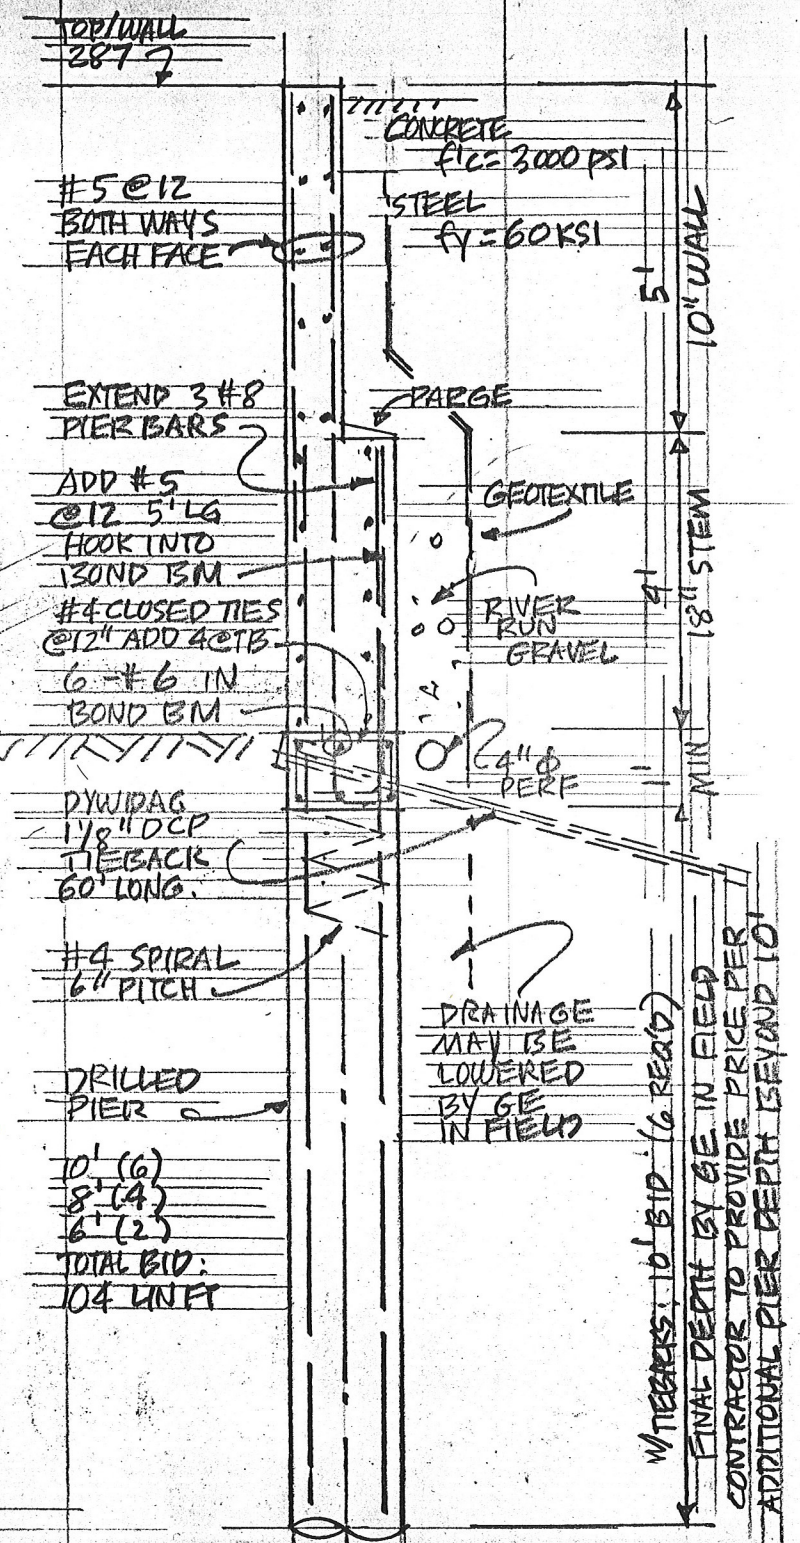 TOP/WALL
287
CONCRETE
f'c = 3000 PSI
STEEL
fy = 60 KSI
#5 @ 12
BOTH WAYS
EACH FACE
5'
10" WALL
EXTEND 3 #8
PIER BARS
PARGE
ADD #5
@12 5' LG
HOOK INTO
BOND BM
GEOTEXTILE
4'
18" STEM
#4 CLOSED TIES
@12" ADD 4@TB
6 - #6 IN
BOND BM
RIVER
RUN
GRAVEL
4" Φ
PERF
1'
MIN
DYWIDAG
1 1/8" DCP
TIEBACK
60' LONG.
#4 SPIRAL
6" PITCH
DRAINAGE
MAY BE
LOWERED
BY GE
IN FIELD
DRILLED
PIER
10' (6)
8' (4)
6' (2)
TOTAL BID:
104 LIN FT
W/TIEBACKS: 10' BID (6 REQ'D)
FINAL DEPTH BY GE IN FIELD
CONTRACTOR TO PROVIDE PRICE PER
ADDITIONAL PIER DEPTH BEYOND 10'